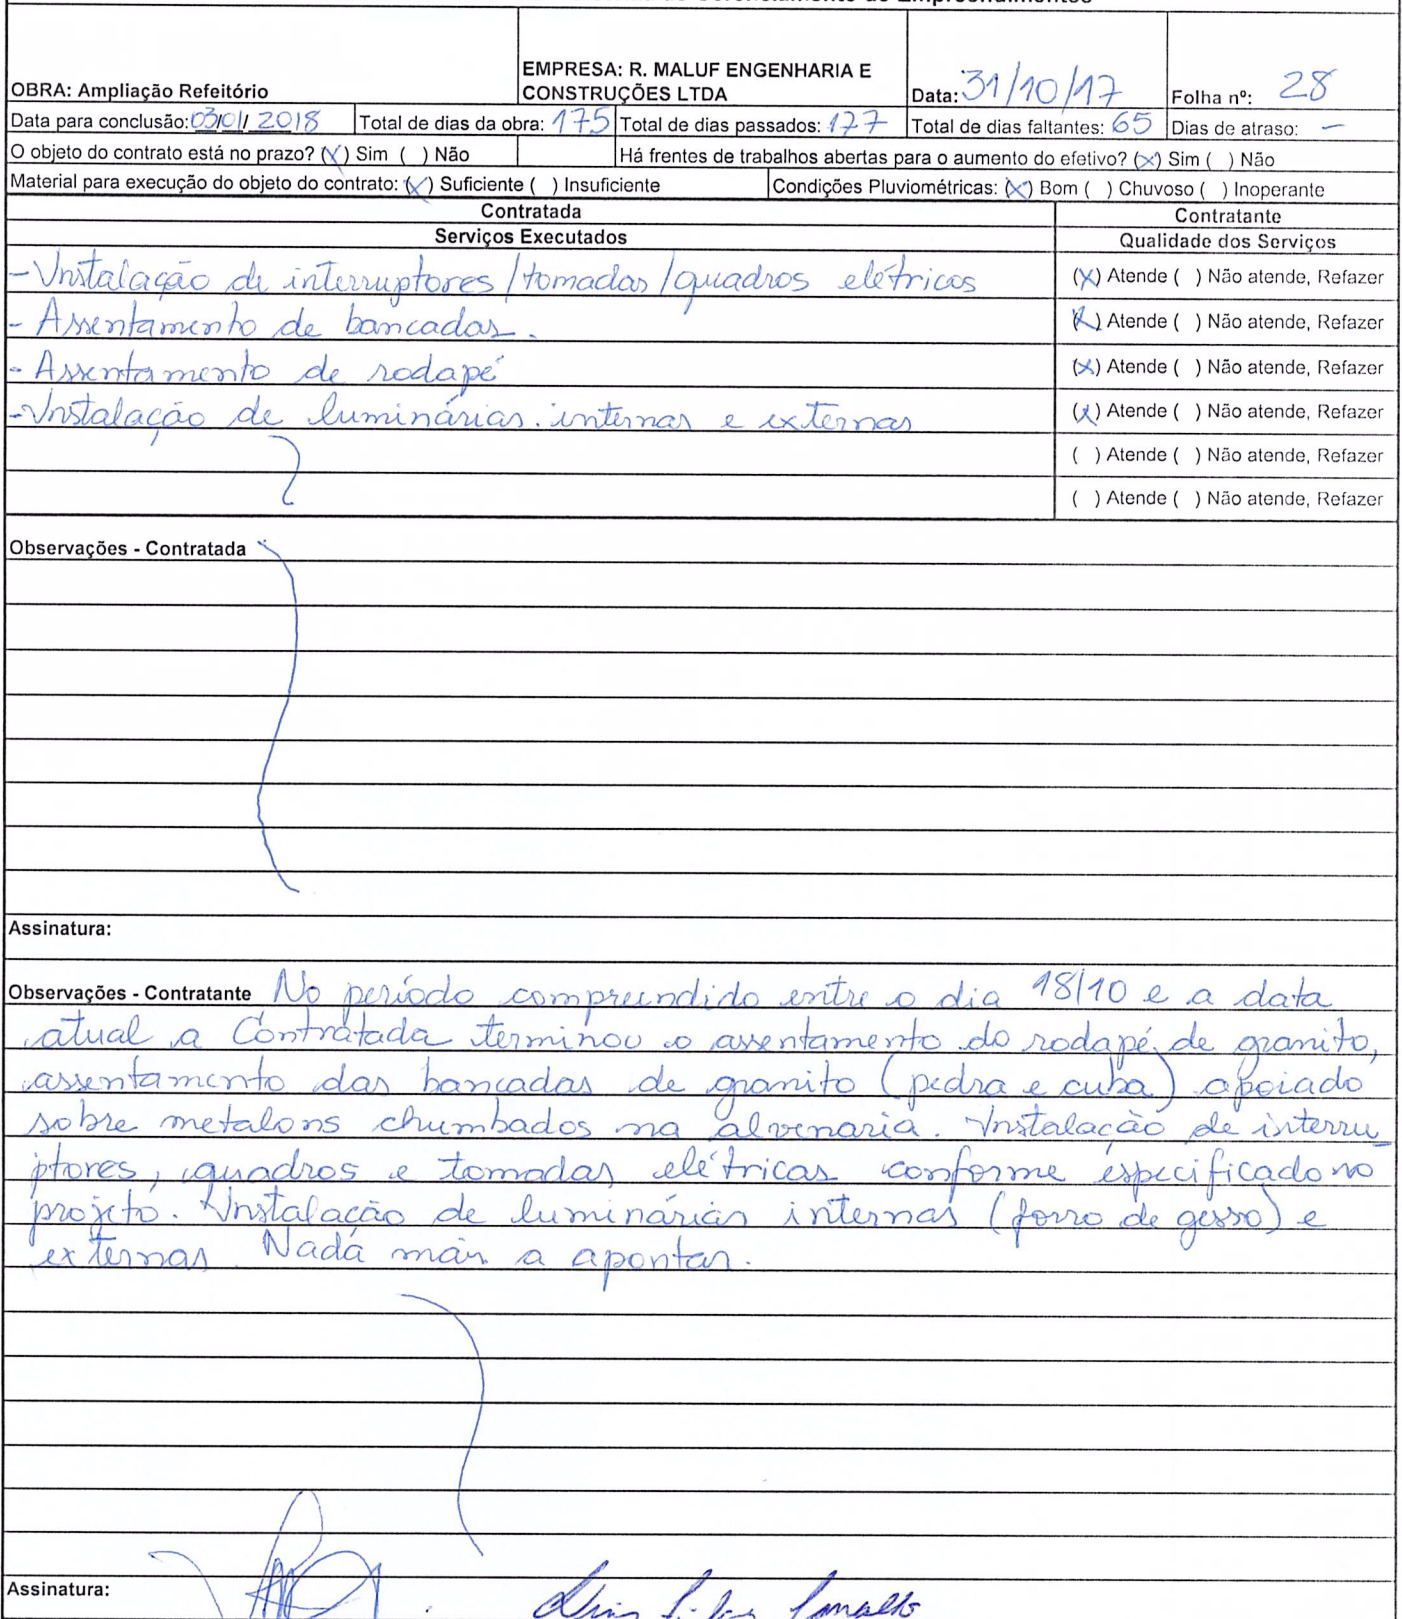 EMPRESA: R. MALUF ENGENHARIA E
OBRA: Ampliação Refeitório CONSTRUÇÕES LTDA Data: 31/10/17 Folha nº: 28
Data para conclusão: 03/01/2018 Total de dias da obra: 175 Total de dias passados: 177 Total de dias faltantes: 65 Dias de atraso: -
O objeto do contrato está no prazo? (X) Sim ( ) Não Há frentes de trabalhos abertas para o aumento do efetivo? (X) Sim ( ) Não
Material para execução do objeto do contrato: (X) Suficiente ( ) Insuficiente Condições Pluviométricas: (X) Bom ( ) Chuvoso ( ) Inoperante
Contratada Contratante
Serviços Executados Qualidade dos Serviços
- Instalação de interruptores/tomadas/quadros elétricos (X) Atende ( ) Não atende, Refazer
- Assentamento de bancadas. (X) Atende ( ) Não atende, Refazer
- Assentamento de rodapé (X) Atende ( ) Não atende, Refazer
- Instalação de luminárias internas e externas (X) Atende ( ) Não atende, Refazer
( ) Atende ( ) Não atende, Refazer
( ) Atende ( ) Não atende, Refazer
Observações - Contratada
Assinatura:
Observações - Contratante No período compreendido entre o dia 18/10 e a data
atual a Contratada terminou o assentamento do rodapé de granito,
assentamento das bancadas de granito (pedra e cuba) apoiado
sobre metalons chumbados na alvenaria. Instalação de interru
ptores, quadros e tomadas elétricas conforme especificado no
projeto. Instalação de luminárias internas (forro de gesso) e
externas. Nada mais a apontar.
Assinatura: